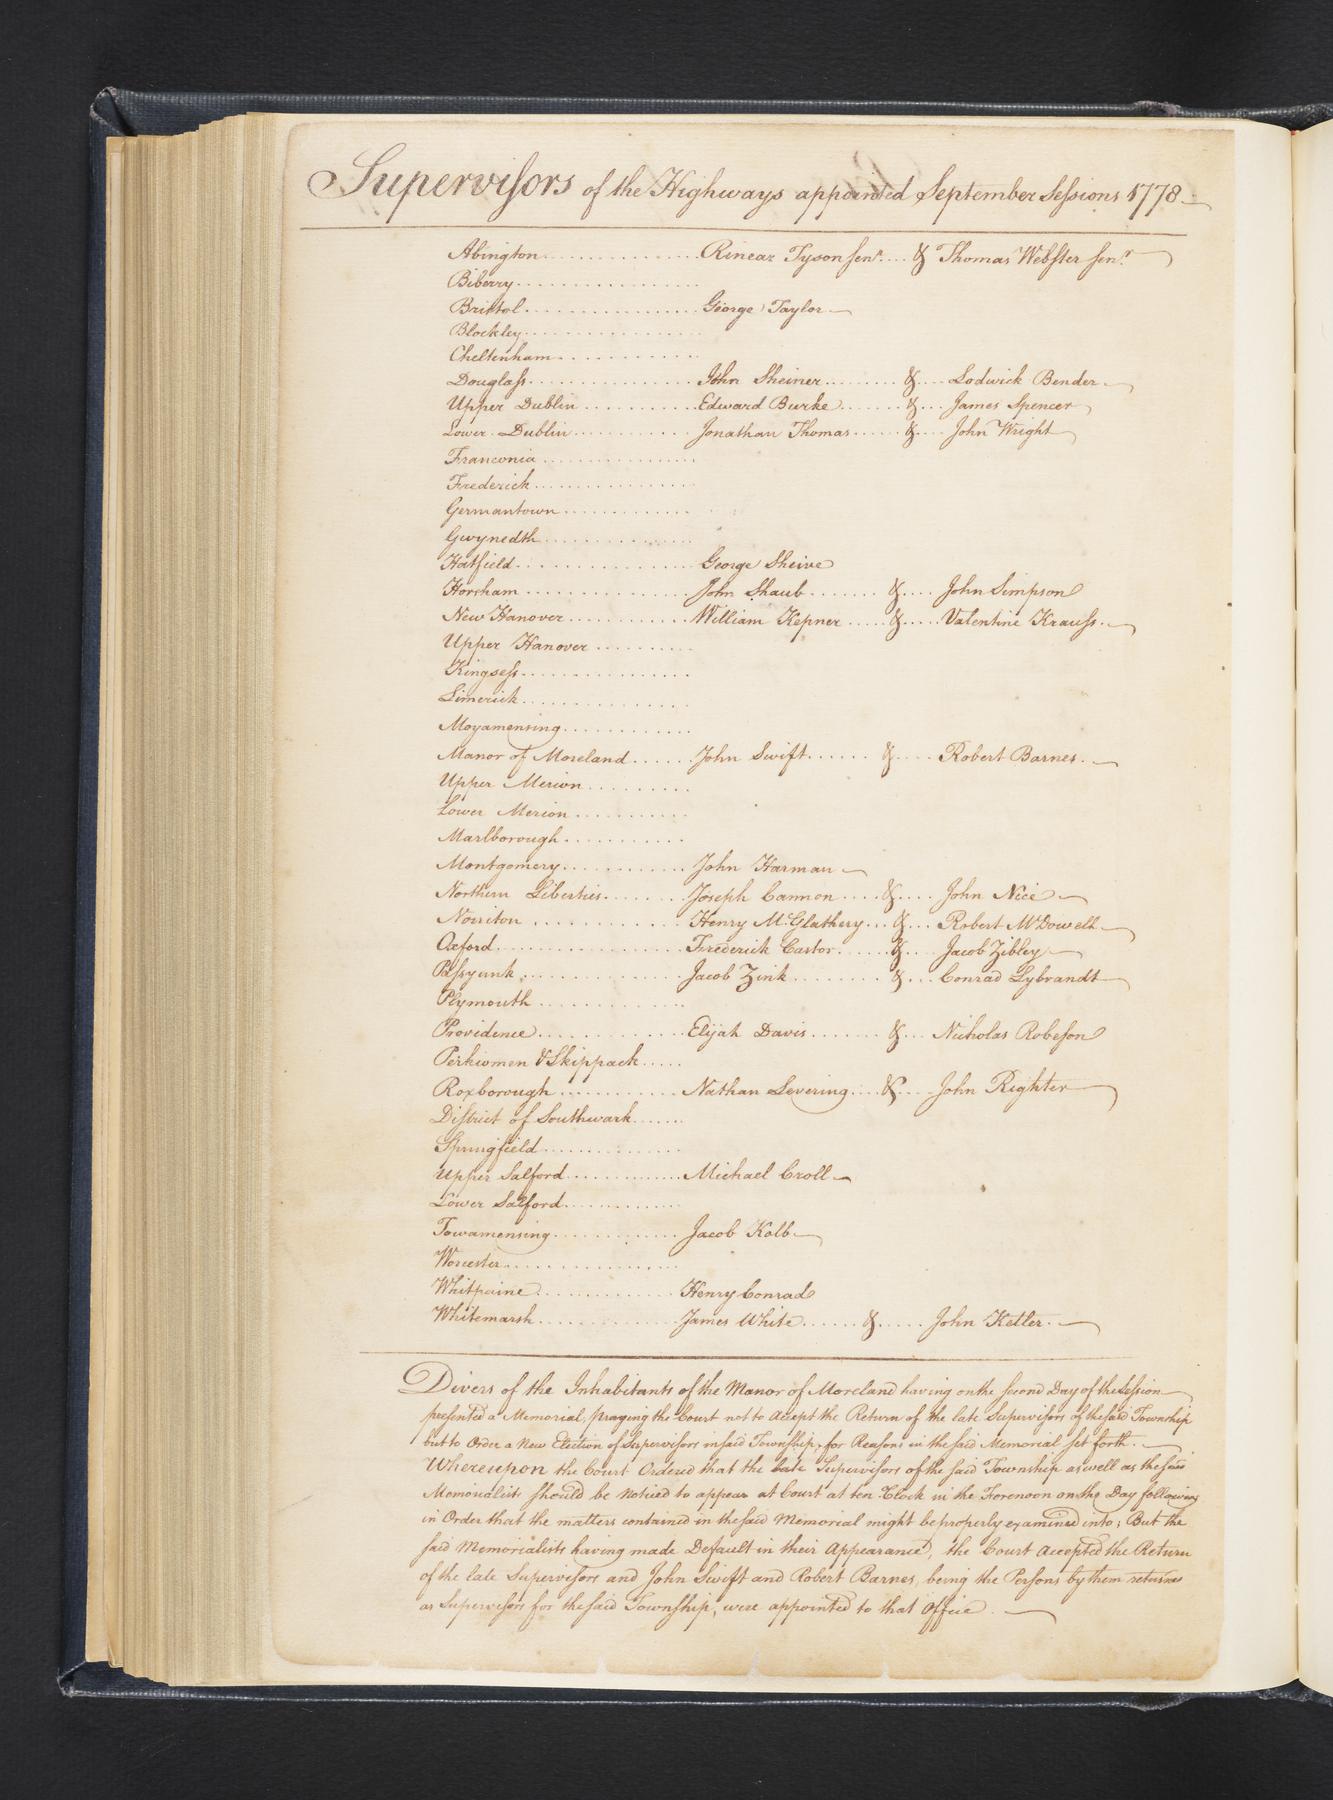 Supervisors of the Highways appointed September Sessions 1778
Abington ................ Rinear Tyson senr. .... & Thomas Webster senr.
Biberry ................
Bristol ................ George Taylor
Blockley ................
Cheltenham ............
Douglass ................ John Sheiner ......... & .... Lodwick Bender
Upper Dublin ........... Edward Burke ....... & ... James Spencer
Lower Dublin ............ Jonathan Thomas ...... & .... John Wright
Franconia ................
Frederick ................
Germantown .............
Gwynedth ...............
Hatfield ................ George Sheive
Horsham ................ John Shaub ....... & .... John Simpson
New Hanover ............ William Kepner ..... & ..... Valentine Krauss
Upper Hanover ..........
Kingsess ................
Limerick ...............
Moyamensing .............
Manor of Moreland ...... John Swift ...... & .... Robert Barnes
Upper Merion ..........
Lower Merion ...........
Marlborough ............
Montgomery ............ John Harman
Northern Liberties ........ Joseph Cannon .... & .... John Nice
Norriton ............. Henry McGlathery ... & ... Robert McDowell
Oxford ................. Frederick Castor ...... & ... Jacob Zibley
Passyunk ............... Jacob Zink ......... & ... Conrad Lybrandt
Plymouth .............
Providence ............. Elijah Davis ....... & .... Nicholas Robeson
Perkiomen & Skippack .....
Roxborough ............ Nathan Levering .... & .... John Righter
District of Southwark ......
Springfield ...............
Upper Salford ............. Michael Croll
Lower Salford .............
Towamensing ............. Jacob Kolb
Worcester ..................
Whitpaine ............. Henry Conrad
Whitemarsh .............. James White ...... & ..... John Ketler
Divers of the Inhabitants of the Manor of Moreland having on the second Day of the Session
presented a Memorial, praying the Court not to accept the Return of the late Supervisors of the said Township
but to Order a New Election of Supervisors in said Township, for Reasons in the said Memorial set forth.
Whereupon the Court Ordered that the late Supervisors of the said Township as well as the said
Memorialists should be Noticed to appear at Court at ten Clock in the Forenoon on the Day following
in Order that the matters contained in the said Memorial might be properly examined into; But the
said Memorialists having made Default in their Appearance, the Court accepted the Return
of the late Supervisors and John Swift and Robert Barnes, being the Persons by them returned
as Supervisors for the said Township, were appointed to that Office.